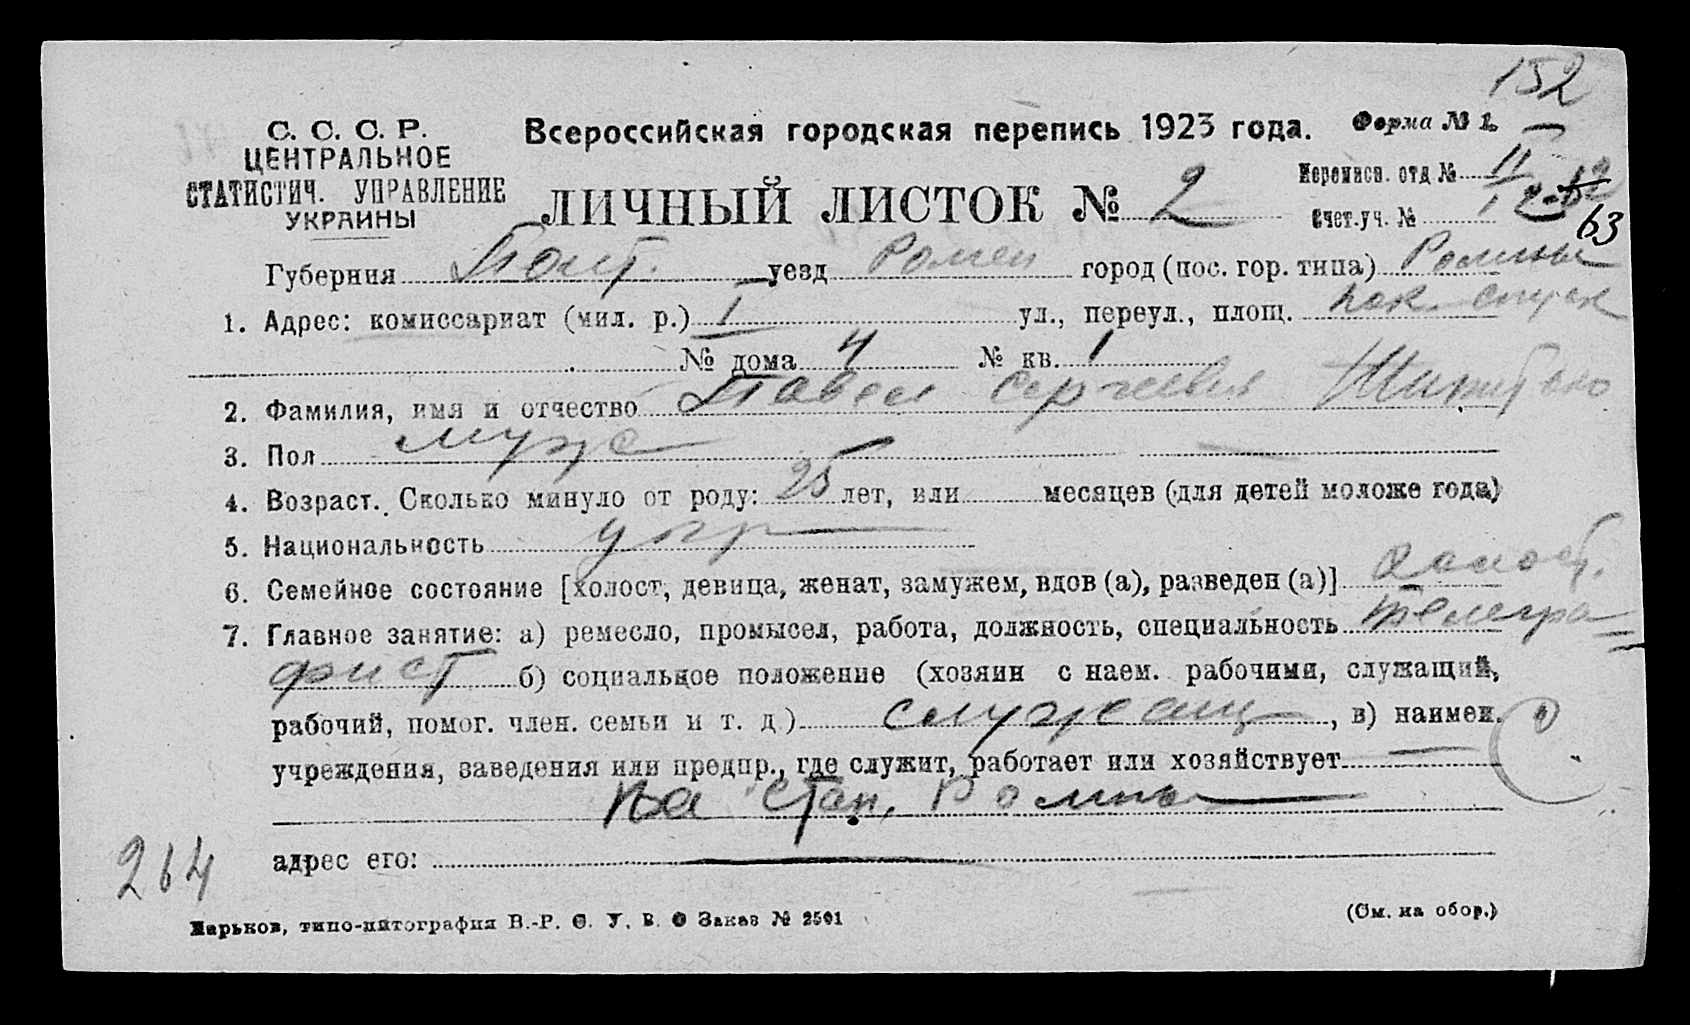 152
С. С. С. Р.
ЦЕНТРАЛЬНОЕ
СТАТИСТИЧ. УПРАВЛЕНИЕ
УКРАИНЫ
Всероссийская городская перепись 1923 года.
Форма № 1.
ЛИЧНЫЙ ЛИСТОК № 2
Переписн. отд № II
Счет.уч. №
63
Губерния Полт. уезд Ромен город (пос. гор. типа) Ромны
1. Адрес: комиссариат (мил. р.) I ул., переул., площ.
№ дома 4 № кв. 1
2. Фамилия, имя и отчество Павел Сергеевич
3. Пол муж
4. Возраст. Сколько минуло от роду: 25 лет, или месяцев (для детей моложе года)
5. Национальность укр
6. Семейное состояние [холост, девица, женат, замужем, вдов (а), разведен (а)] холост.
7. Главное занятие: а) ремесло, промысел, работа, должность, специальность телегра=
фист б) социальное положение (хозяин с наем. рабочими, служащий,
рабочий, помог. член. семьи и т. д.) служащ, в) наимен.
учреждения, заведения или предпр., где служит, работает или хозяйствует
на стан. Ромны
адрес его:
264
Харьков, типо-литография В.-Р. Ф. У. В. О Заказ № 2501
(См. на обор.)